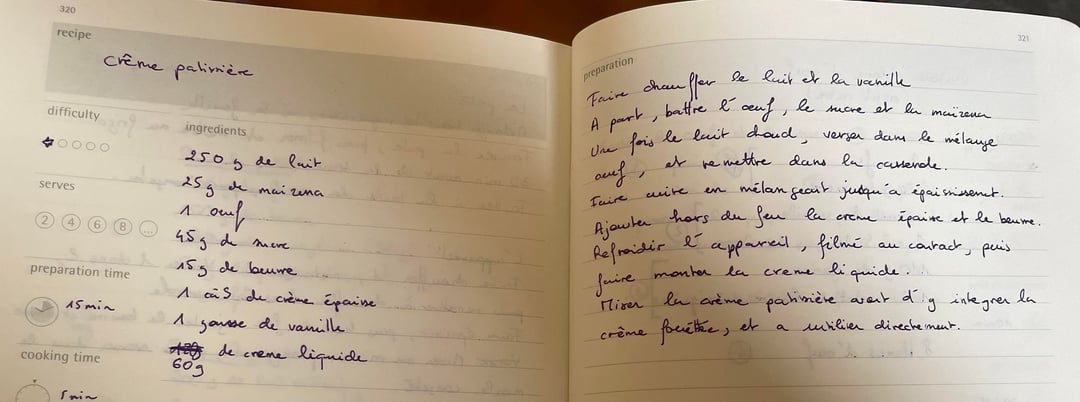 320
recipe
crême patissière
difficulty
serves
2 4 6 8 ...
preparation time
15min
cooking time
5min
ingredients
250g de lait
25g de maizena
1 oeuf
45g de sucre
15g de beurre
1 càS de crème épaisse
1 gousse de vanille
de creme liquide
60g
321
preparation
Faire chauffer le lait et la vanille
A part, battre l'oeuf, le sucre et la maïzena
Une fois le lait chaud, verser dans le mélange
oeuf, et remettre dans la casserole.
Faire cuire en mélangeant jusqu'a épaississement.
Ajouter hors du feu la creme épaisse et le beurre.
Refroidir l'appareil, filmé au contact, puis
faire monter la creme liquide.
Mixer la crème patissière avant d'y integrer la
crème fouettée, et a utiliser directement.